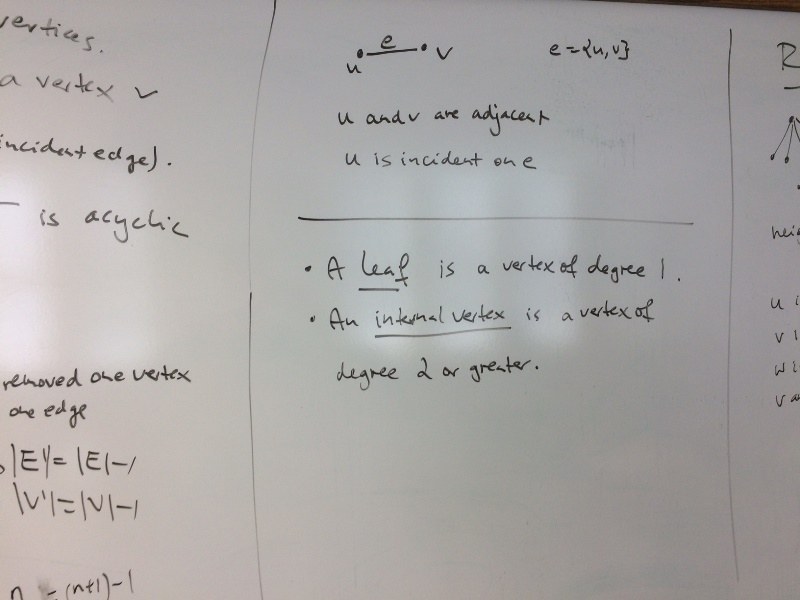 vertices.
a vertex v
incident edge).
is acyclic
removed one vertex
one edge
|E'|= |E|-1
|V'|=|V|-1
n = (n+1)-1
e
u v e={u,v}
u and v are adjacent
u is incident on e
• A leaf is a vertex of degree 1.
• An internal vertex is a vertex of
degree 2 or greater.
R
u i
v i
w i